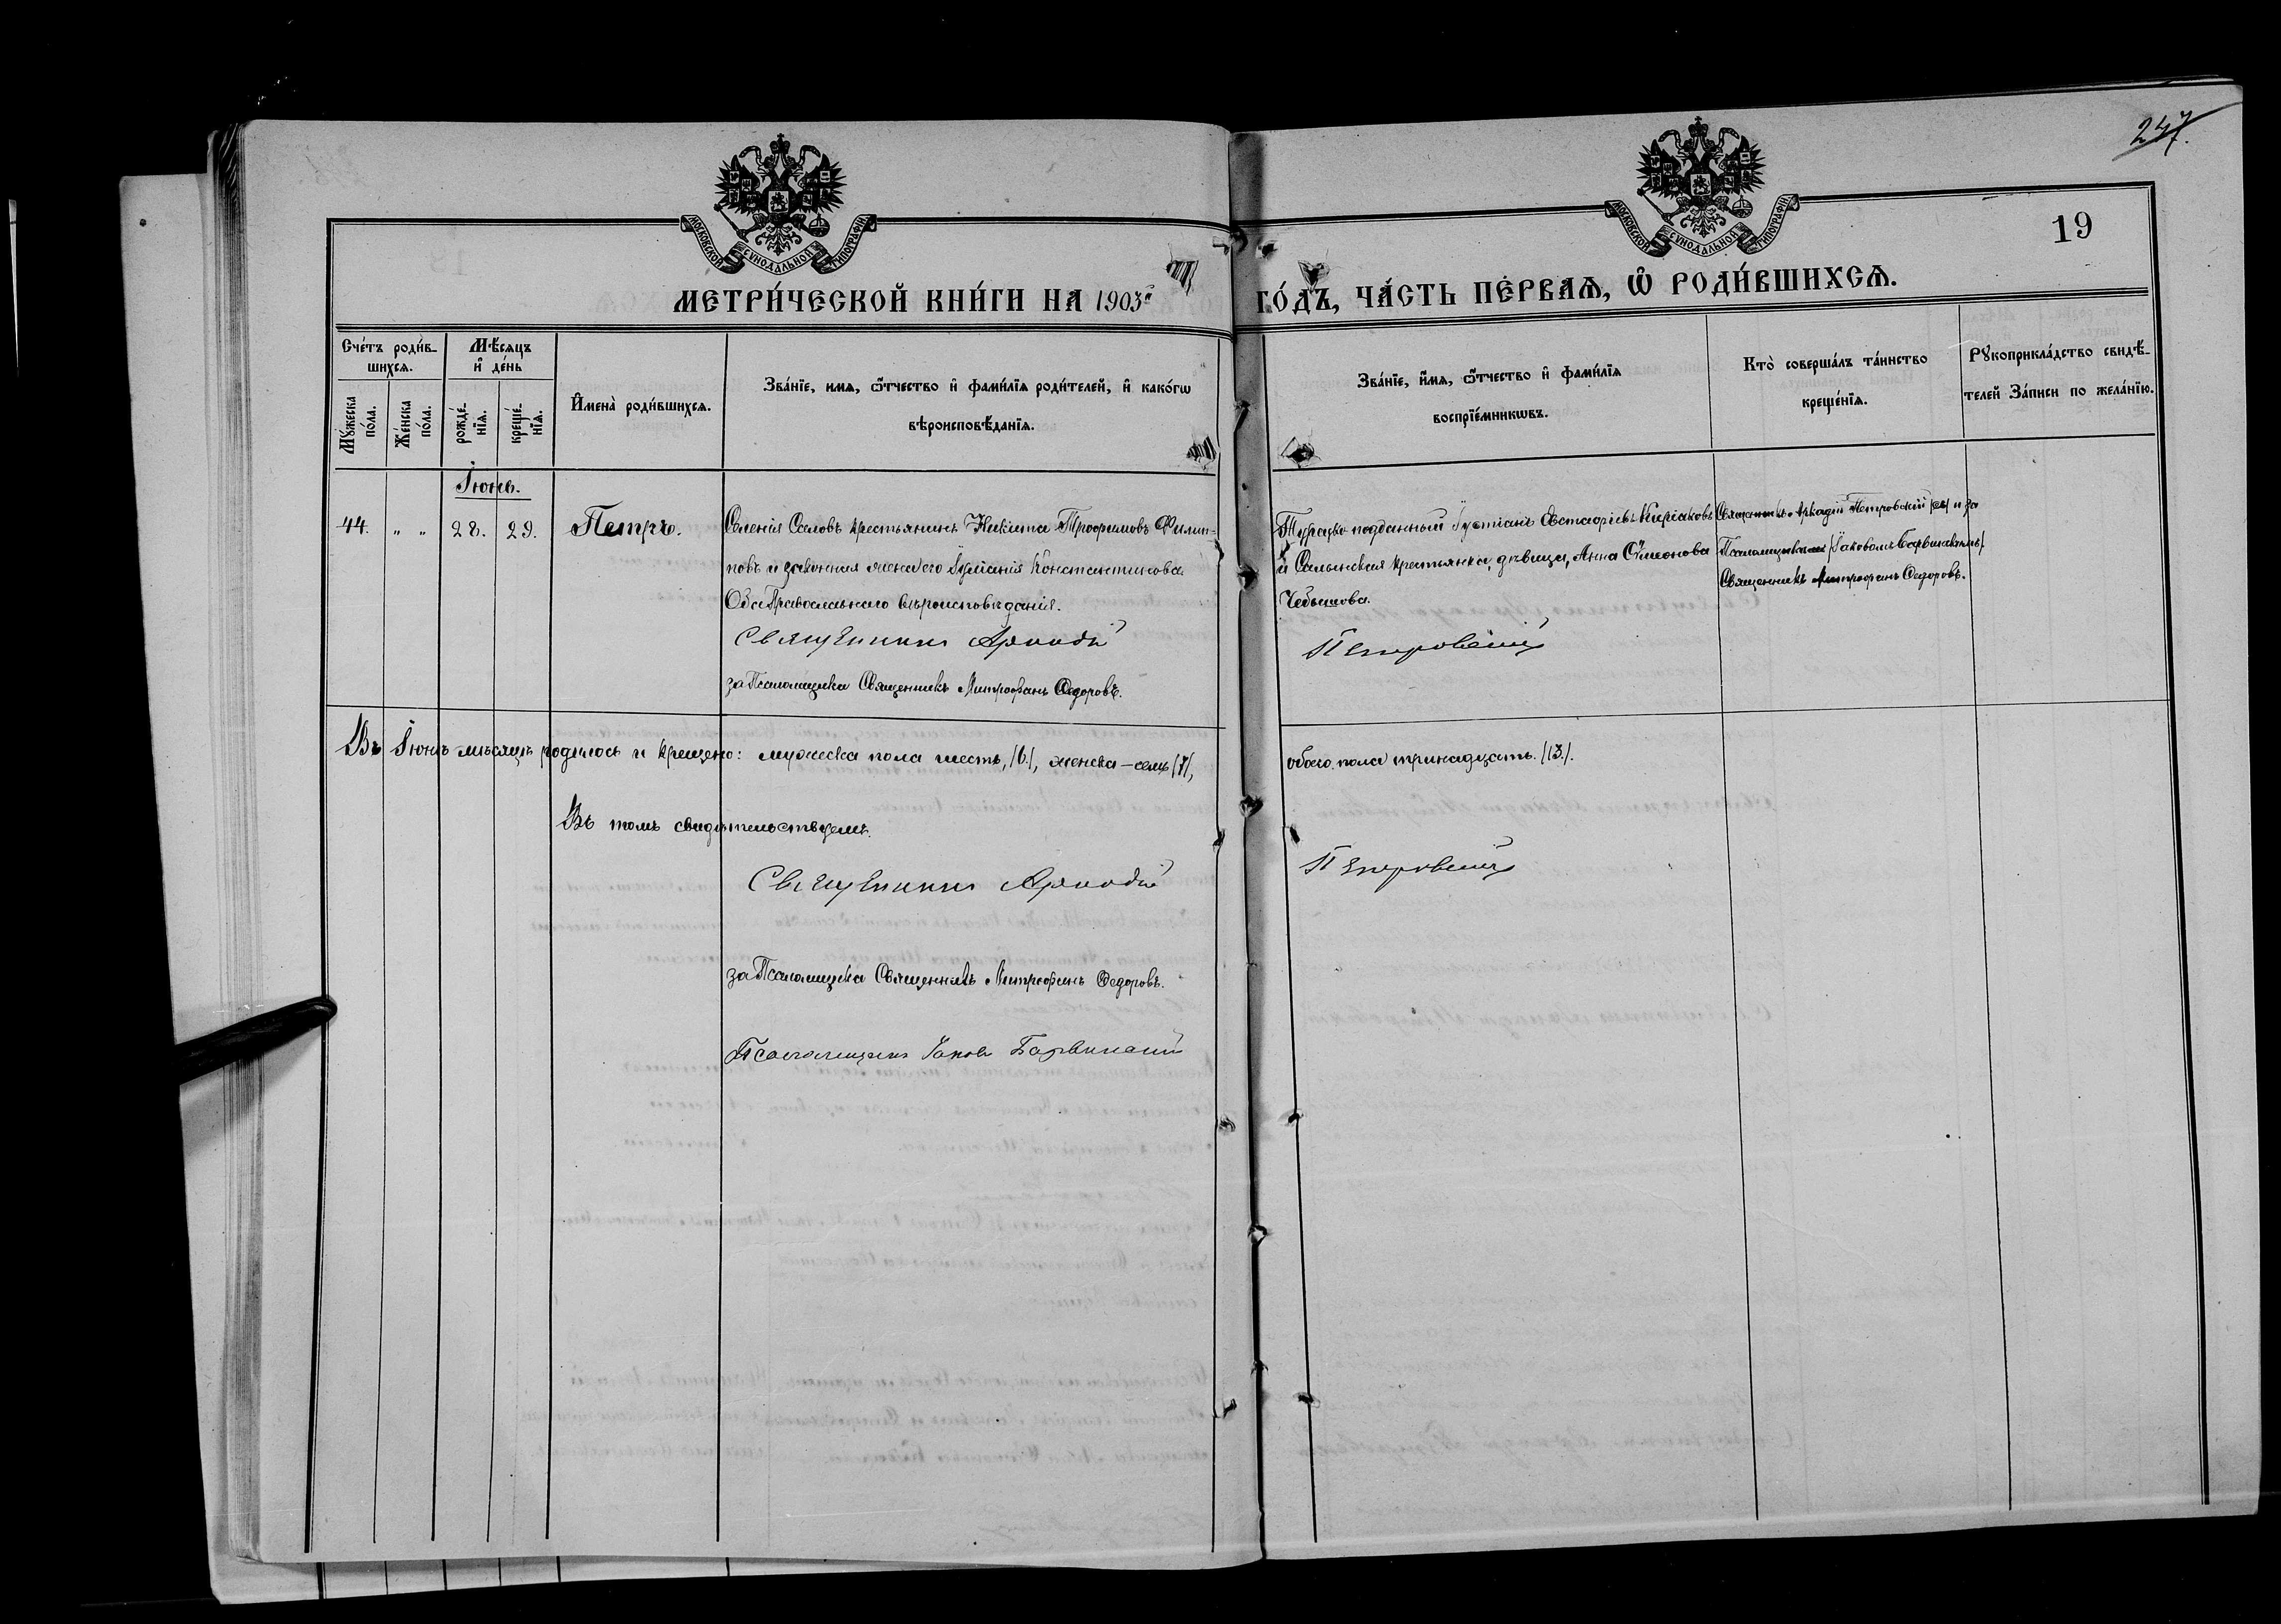 247.
19
МОСКОВСКОЙ СУНОДАЛЬНОЙ ТИПОГРАФІИ
МОСКОВСКОЙ СУНОДАЛЬНОЙ ТИПОГРАФІИ
МЕТРИ́ЧЕСКОЙ КНИ́ГИ НА 1903й ГО́ДЪ, ЧА́СТЬ ПЕ́РВАѦ, Ѡ҆ РОДИ́ВШИХСѦ.
Сче́тъ роди́в-
шихсѧ.
Мѣ́сѧцъ
и҆ де́нь
Мꙋ́жеска
по́ла.
Же́нска
по́ла.
рожде́-
нїѧ.
креще́-
нїѧ.
И҆мена̀ роди́вшихсѧ.
Зва́нїе, имѧ, ѻ҆́тчество и҆ фами́лїѧ роди́телей, и҆ како́гѡ
вѣроисповѣ́данїѧ.
Зва́нїе, и҆́мѧ, ѻ҆́тчество и҆ фами́лїѧ
воспрїе́мникѡвъ.
Кто̀ соверша́лъ та́инство
креще́нїѧ.
Рꙋкоприкла́дство свидѣ́-
телей За́писи по жела́нїю.
Іюнь.
44. " " 28. 29. Петръ.
Селенія Саловъ крестьянинъ Никита Трофимовъ Филип-
повъ и законная жена его Константинова.
Оба Православнаго вѣроисповѣданія.
Священникъ Аркадій Петровскій
за Псаломщика Священникъ Митрофанъ Ѳедоровъ.
Турецко подданный Евстафіевъ Киріаковъ
и крестьянка, дѣвица, Анна Сѵмеонова
Чебышова.
Священникъ Аркадій Петровскій и за
Псаломщика Іаковомъ
Священникъ Митрофанъ Ѳедоровъ.
Въ Іюнѣ мѣсяцѣ родилось и крещено: мужеска пола шесть, /6/, женска – семь /7/, обоего пола тринадцать. /13/.
Въ томъ свидѣтельствуемъ.
Священникъ Аркадій Петровскій
за Псаломщика Священникъ Митрофанъ Ѳедоровъ.
Псаломщикъ Іаковъ Барвинскій